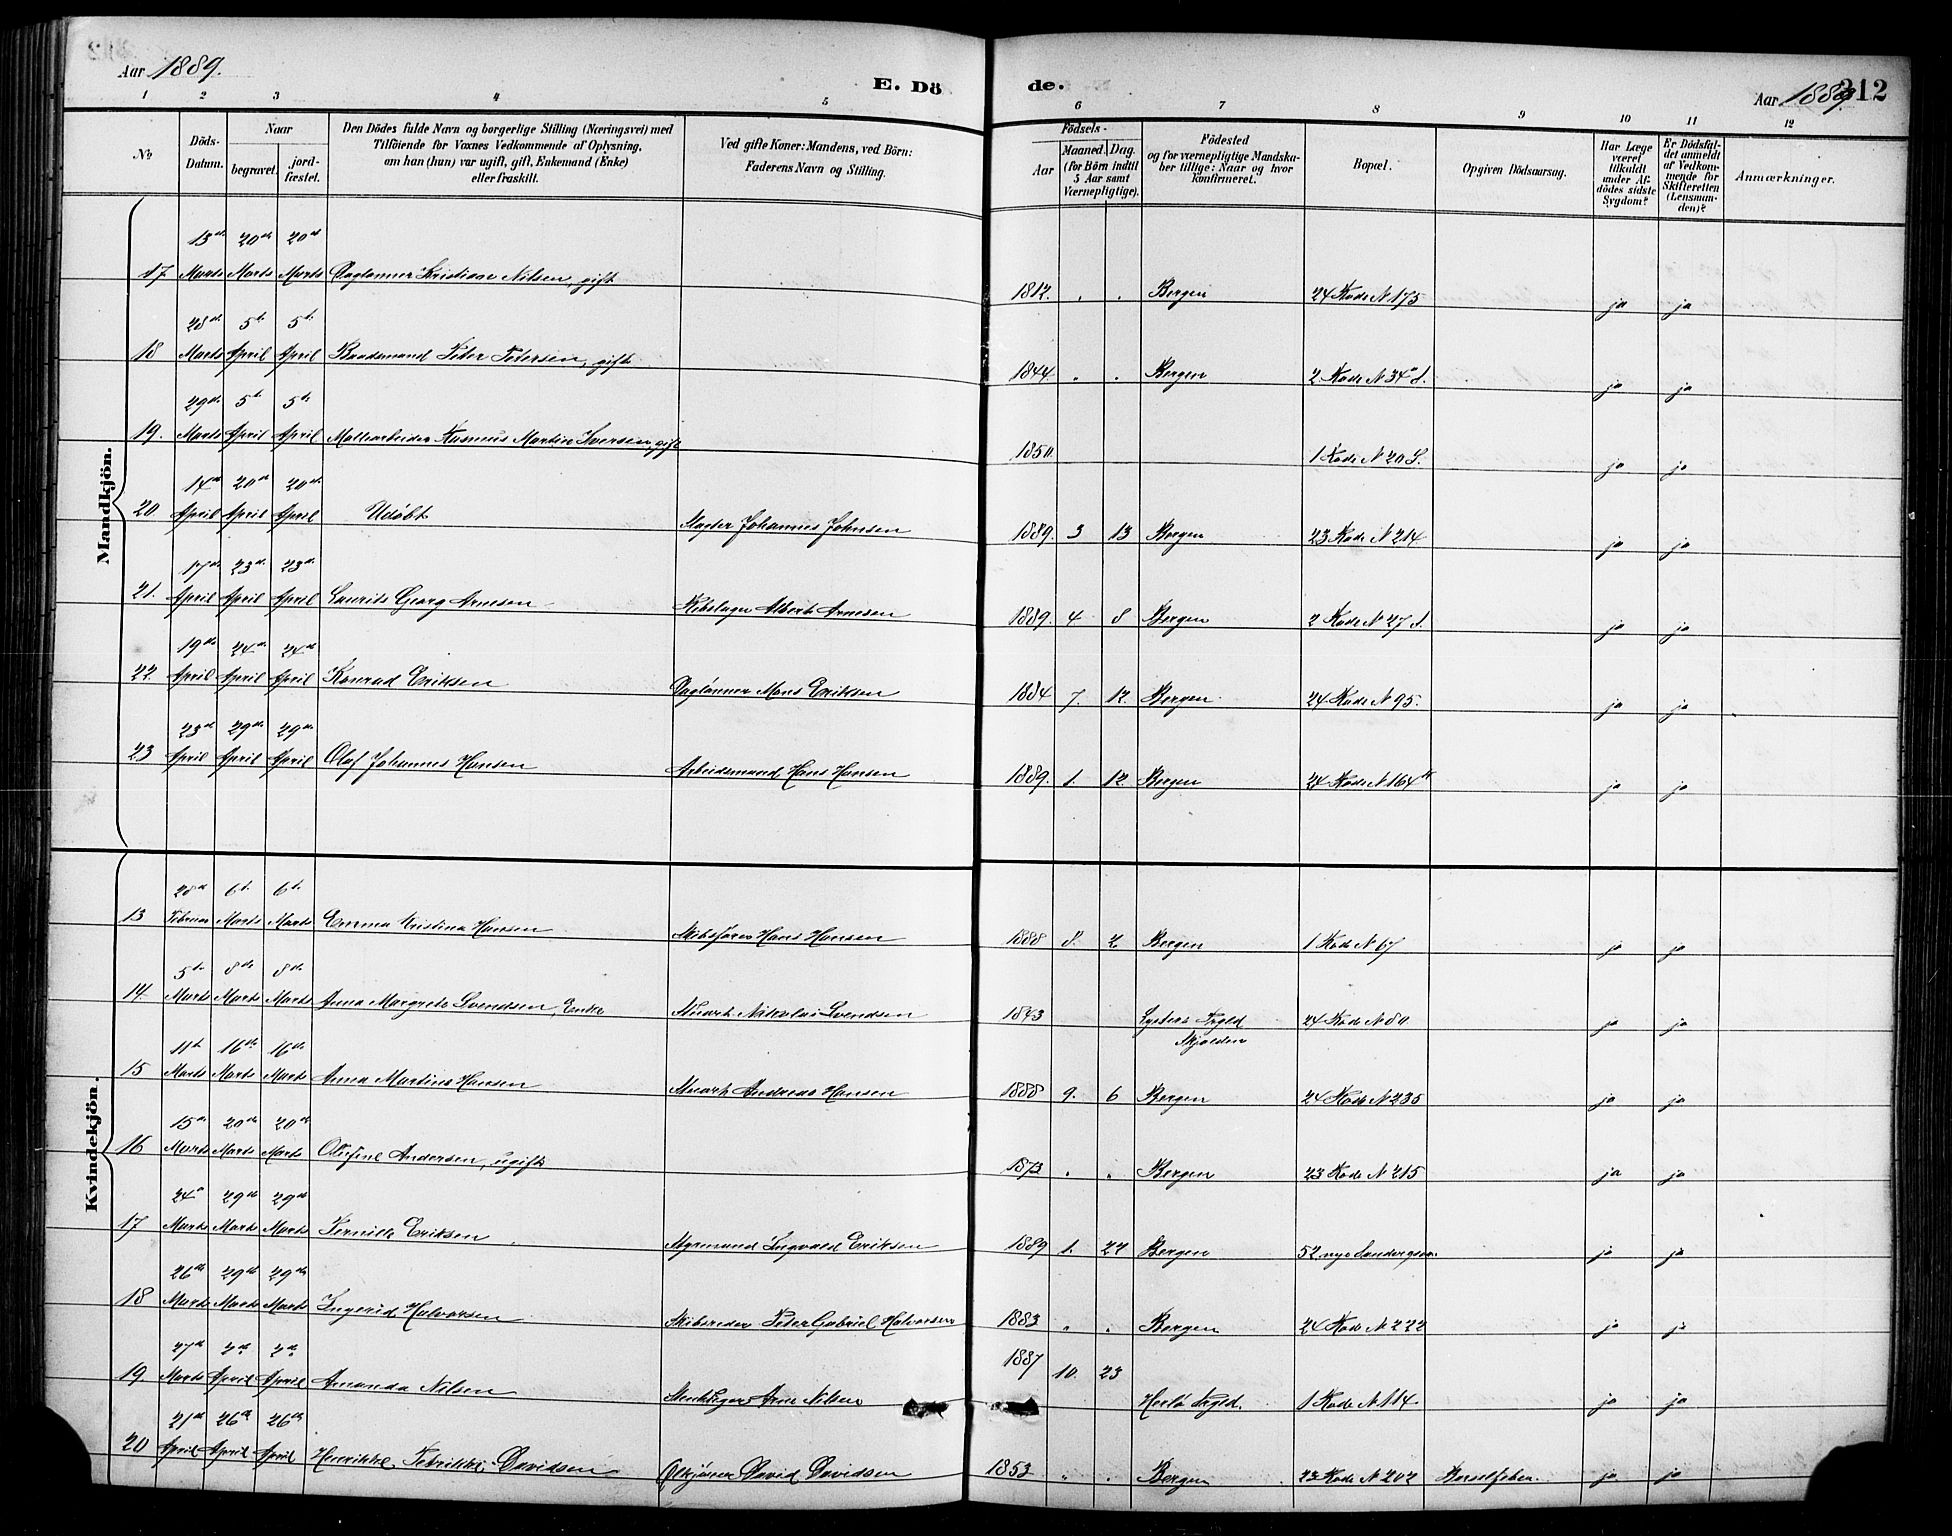 Aar 1889.
E. Dö
de.
Aar 1889
312
1 2 3 4 5 6 7 8 9 10 11 12
No
Döds-Datum.
Naar
begravet.
jord-fæstet.
Den Dödes fulde Navn og borgerlige Stilling (Næringsvei) med
Tilföiende for Voxnes Vedkommende af Oplysning,
om han (hun) var ugift, gift, Enkemand (Enke)
eller fraskilt.
Ved gifte Koner: Mandens, ved Börn:
Faderens Navn og Stilling.
Födsels-
Aar
Maaned. Dag.
(for Börn indtil
5 Aar samt
Værnepligtige).
Födested
og for værnepligtige Mandska-
ber tillige: Naar og hvor
konfirmeret.
Bopæl.
Opgiven Dödsaarsag.
Har Læge
været
tilkaldt
under Af-
dödes sidste
Sygdom?
Er Dödsfal-
det anmeldt
af Vedkom-
mende for
Skifteretten
(Lensman-
den)?
Anmærkninger.
Mandkjön.
17 Marts Marts Marts Daglønner Kristian Nilsen, gift 1812. " " Bergen 24 Rode N 175 ja ja
28de 5te 5te
18 Marts April April Baadsmand Peter Petersen, gift 1844 " " Bergen 2 Rode N 34 ja ja
29de 5te 5te
19. Marts April April Rasmus Martin Iversen, gift 1850 1 Rode N 20 ja ja
14de 20de 20de
20 April April April Udøbt Johannes Johnsen 1889. 3 13 Bergen 23 Rode N 214 ja ja
17de 23de 23de
21. April April April Laurits Georg Arnesen Albert Arnesen 1889. 4 8 Bergen 2 Rode N 27 ja ja
19de 24de 24de
22. April April April Konrad Eriksen Daglønner Mons Eriksen 1884 7. 12. Bergen 24 Rode N 95. ja ja
23de 29de 29de
23 April April April Olaf Johannes Hansen Arbeidsmand Hans Hansen 1889. 1. 12. Bergen 24 Rode N 164 ja ja
Kvindekjön.
28de 6te 6te
13 Februar Marts Marts Emma Kristina Hansen Skibsfører Hans Hansen 1888 8. 2 Bergen 1 Rode N 67 ja ja
5te 8de 8de
14. Marts Marts Marts Anna Margrete Svendsen, Enke Stuart Nikolai Svendsen 1843 Lysters Prgld Skjolden 24 Rode N 80 ja ja
11te 16de 16de
15 Marts Marts Marts Anna Martine Hansen Stuart Andreas Hansen 1888 9. 6 Bergen 24 Rode N 235 ja ja
15de 20de 20de
16 Marts Marts Marts Olufine Andersen, ugift 1873 " " Bergen 23 Rode N 215 ja ja
24de 29de 29de
17 Marts Marts Marts Pernille Eriksen Styrmand Ingvald Eriksen 1889 1. 22 Bergen 52 nye ja ja
26de 29de 29de
18 Marts Marts Marts Ingerid Halvorsen Skibsreder Peter Gabriel Halvorsen 1883 " " Bergen 24 Rode N 222 ja ja
27de 2den 2den
19. Marts April April Amanda Nilsen Arne Nilsen 1887 10. 23 Herlø Prgld. 1 Rode N 114 ja ja
21de 26de 26de
20 April April April Henrikke Fredrikke Davidsen David Davidsen 1853 " " Bergen 23 Rode N 202 Barselfeber. ja ja